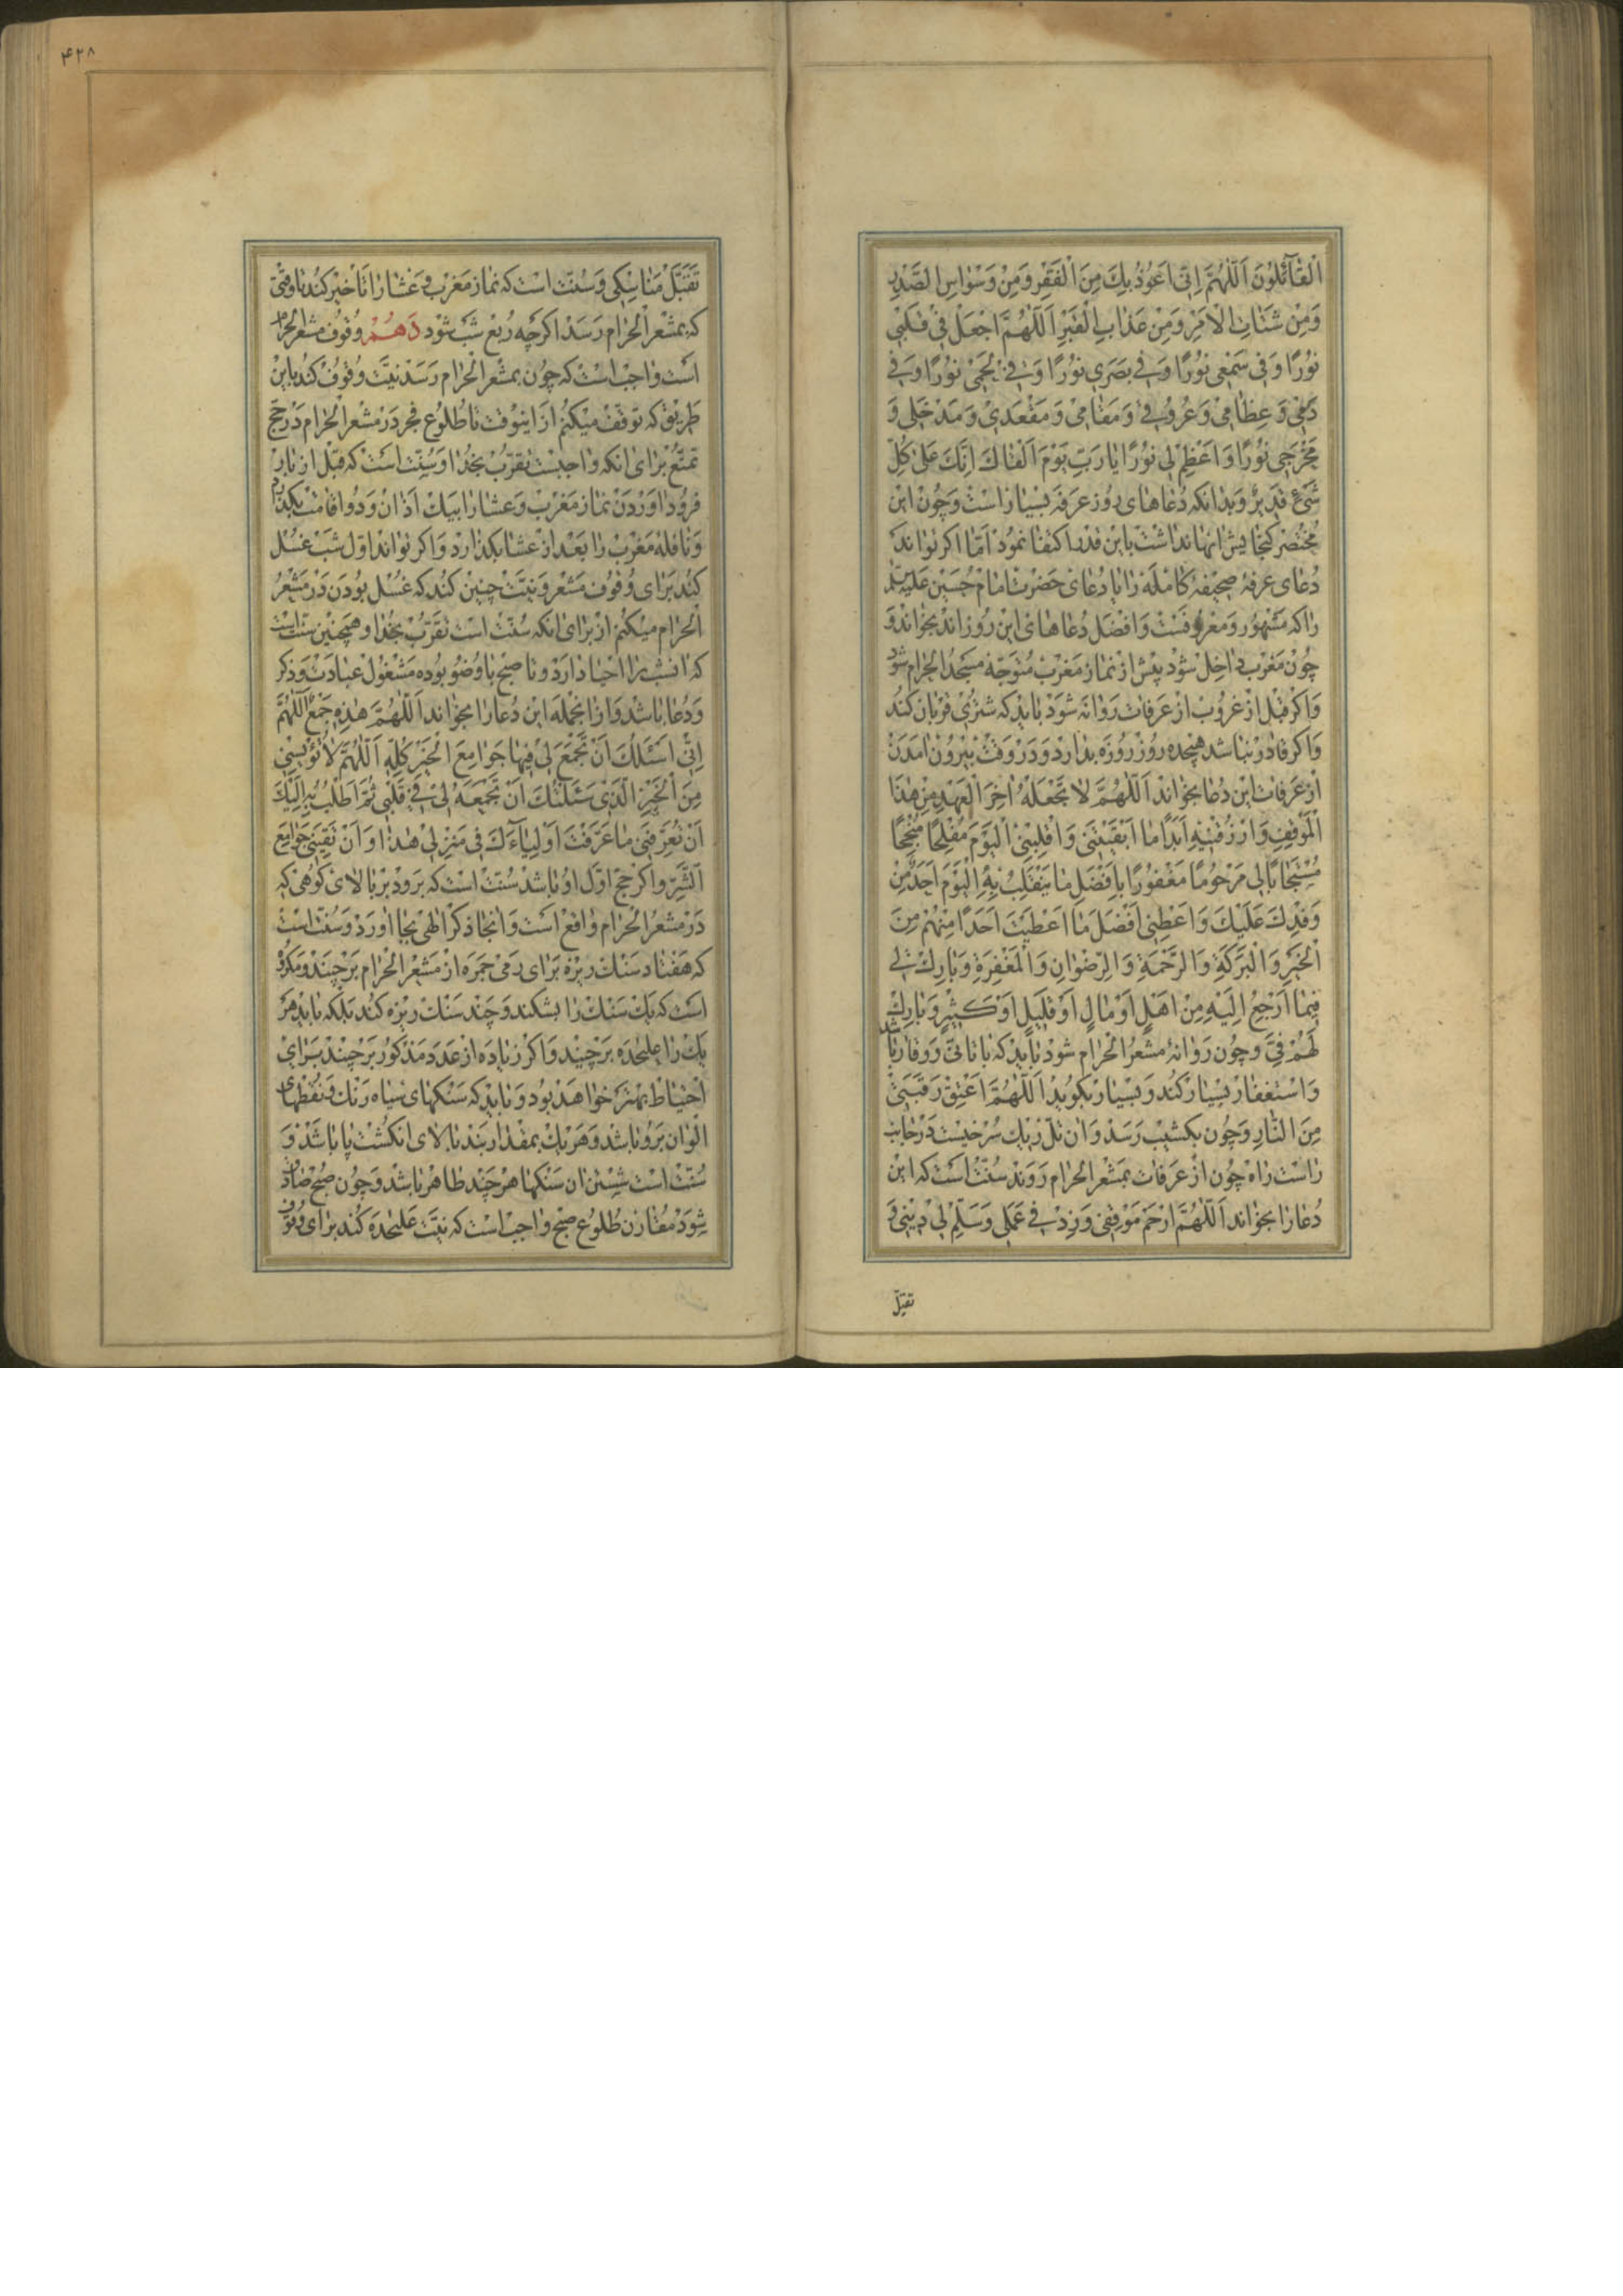 الْقٰآئِلُونَ اَللّٰهُمَّ اِنّى اَعُوذُ بِكَ مِنَ الْفَقْرِ وَمِنْ وَسْوٰاسِ الصَّدْرِ
وَمِنْ شَتٰاتِ الْاَمْرِ وَمِنْ عَذٰابِ الْقَبْرِ اَللّٰهُمَّ اجْعَلْ فى قَلْبى
نُورًا وَفى سَمْعى نُورًا وَفى بَصَرى نُورًا وَفى لَحْمى نُورًا وَفى
دَمى وَ عِظٰامى وَ عُرُوقى وَ مَقٰامى وَ مَقْعَدى وَ مَدْخَلى وَ
مَخْرَجى نُورًا وَ اَعْظِمْ لى نُورًا يٰا رَبِّ يَوْمَ اَلْقٰاكَ اِنَّكَ عَلىٰ كُلِّ
شَىْءٍ قَديرٌ وَبدانكه دُعاهاى روز عرفه بسيار است و چون اين
مختصر كنجايش آنها نداشت باين قدر اكتفا نمود امّا اكر تواند
دُعاى عرفهٔ صحيفهٔ كامله را با دُعاى حضرت امام حسين عليه السلم
را كه مشهور و معروفست و افضل دُعاهاى اين روزاند بخواند و
چون مغرب داخل شود پيش از نماز مغرب متوجّه مسجد الحرام شود
و اكر قبل از غروب از عرفات روانه شود بايد كه شترى قربان كند
و اكر قادر نباشد هيجده روز روزه بدارد و در وقت بيرون آمدن
از عرفات اين دُعا بخواند اَللّٰهُمَّ لا تَجْعَلْهُ اٰخِرَ الْعَهْدِ مِنْ هٰذَا
الْمَوْقِفِ وَ ارْزُقْنيهِ اَبَدًا مٰا اَبْقَيْتَنى وَ اقْلِبْنى الْيَوْمَ مُفْلِحًا مُنْجِحًا
مُسْتَجٰابًا لى مَرْحُومًا مَغْفُورًا بِاَفْضَلِ مٰا يَنْقَلِبُ بِهِ الْيَوْمَ اَحَدٌ مِنْ
وَفْدِكَ عَلَيْكَ وَ اَعْطِنى اَفْضَلَ مٰا اَعْطَيْتَ اَحَدًا مِنْهُمْ مِنَ
الْخَيْرِ وَ الْبَرَكَةِ وَ الرَّحْمَةِ وَ الرِّضْوٰانِ وَ الْمَغْفِرَةِ وَ بٰارِكْ لى
فيمٰا اَرْجِعُ اِلَيْهِ مِنْ اَهْلٍ اَوْ مٰالٍ اَوْ قَليلٍ اَوْ كَثيرٍ وَ بٰارِكْ
لَهُمْ فِىَّ و چون روانهٔ مشعر الحرام شود بايد كه با تأنّى و وقار باشد
و استغفار بسيار كند و بسيار بكويد اَللّٰهُمَّ اَعْتِقْ رَقَبَتى
مِنَ النّٰارِ و چون بكثيب رسد و آن تلّ ريك سرخيست در جانب
راست راه چون از عرفات بمشعر الحرام روند سُنّت است كه اين
دُعا را بخواند اَللّٰهُمَّ ارْحَمْ مَوْقِفى وَ زِدْ فى عَمَلى وَ سَلِّمْ لى دينى وَ
تقبّل
۴۲۸
تَقَبَّلْ مَنٰاسِكى و سُنّت است كه نماز مغرب و عشا را تأخير كند تا وقتى
كه بمشعر الحرام رسد اكرچه ربع شب شود دهم وقوف مشعر الحرام
است واجب است كه چون بمشعر الحرام رسد نيّت وقوف كند باين
طريق كه توقّف ميكنم از اينوقت تا طلوع فجر در مشعر الحرام در حجّ
تمتّع براى انكه واجبست تقرّب بخدا و سُنّت است كه قبل از بار
فرود اوردن نماز مغرب و عشا را بيك اذان و دو اقامت بكذارد
و نافلهٔ مغرب را بعد از عشا بكذارد و اكر تواند اوّل شب غسل
كند براى وقوف مشعر و نيّت چنين كند كه غسل بودن در مشعر
الحرام ميكنم از براى انكه سُنّت است تقرّب بخدا و همچنين سنّت است
كه انشب را احيا دارد و تا صبح با وضو بوده مشغول عبادت و ذكر
و دُعا باشد و از انجمله اين دُعا را بخواند اَللّٰهُمَّ هٰذِهِ جَمْعٌ اَللّٰهُمَّ
اِنّى اَسْئَلُكَ اَنْ تَجْمَعَ لى فيهٰا جَوٰامِعَ الْخَيْرِ كُلِّهِ اَللّٰهُمَّ لٰا تُؤْيِسْنى
مِنَ الْخَيْرِ الَّذى سَئَلْتُكَ اَنْ تَجْمَعَهُ لى فى قَلْبى ثُمَّ اَطْلُبُ اِلَيْكَ
اَنْ تُعَرِّفَنى مٰا عَرَّفْتَ اَوْلِيٰآءَكَ فى مَنْزِلى هٰذٰا وَ اَنْ تَقِيَنى جَوٰامِعَ
الشَّرِّ و اكر حجّ اوّل او باشد سُنّت است كه برود بر بالاى كوهى كه
در مشعر الحرام واقع است و انجا ذكر الهى بجا اورد و سُنّت است
كه هفتاد سنك ريزه براى رمى جمره از مشعر الحرام برچيند و مكروه
است كه يك سنك را بشكند و چند سنك ريزه كند بلكه بايد هر
يك را عليحده برچيند و اكر زياده از عدد مذكور برچيند براى
احتياط بهتر خواهد بود و بايد كه سنكهاى سياه رنك و نقطهاى
الوان برو باشد و هريك بمقدار بند بالاى انكشت پا باشد و
سُنّت است شستن ان سنكها هرچند طاهر باشد و چون صبح صادق
شود مقارن طلوع صبح واجب است كه نيّت عليحده كند براى وقوف